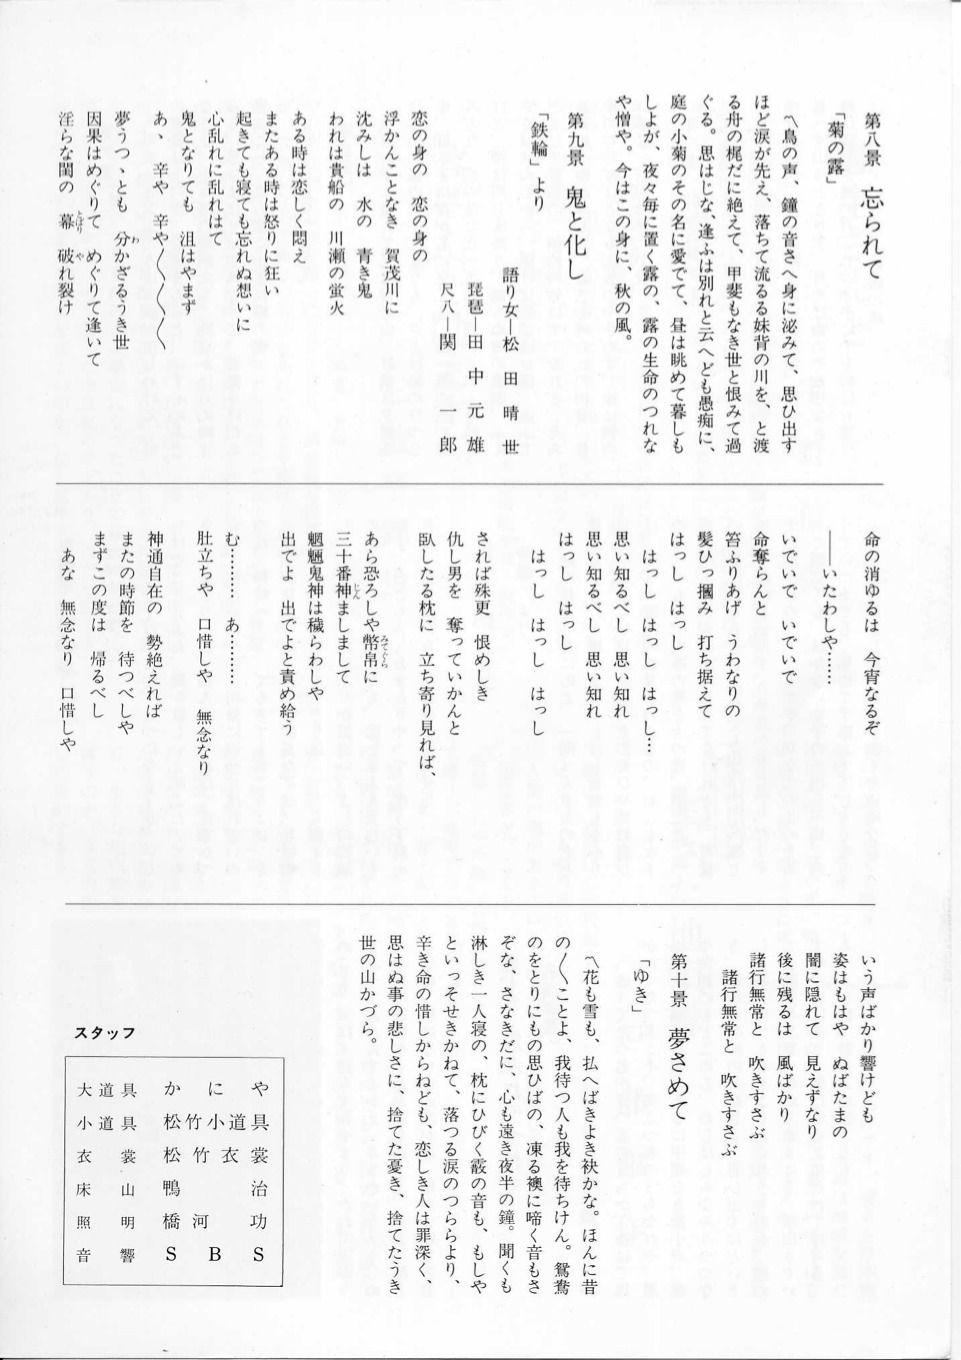 第八景　忘られて
「菊の露」
〽鳥の声、鐘の音さへ身に泌みて、思ひ出す
ほど涙が先え、落ちて流るる妹背の川を、と渡
る舟の梶だに絶えて、甲斐もなき世と恨みて過
ぐる。思はじな、逢ふは別れと云へども愚痴に、
庭の小菊のその名に愛でて、昼は眺めて暮しも
しよが、夜々毎に置く露の、露の生命のつれな
や憎や。今はこの身に、秋の風。
第九景　鬼と化し
「鉄輪」より
語り女―松田晴世
琵琶―田中元雄
尺八―関一郎
恋の身の　恋の身の
浮かんことなき　賀茂川に
沈みしは　水の　青き鬼
われは貴船の　川瀬の蛍火
ある時は恋しく悶え
またある時は怒りに狂い
起きても寝ても忘れぬ想いに
心乱れに乱れはて
鬼となりても　沮はやまず
あゝ　辛や　辛や〱〱〱
夢うつゝとも　分かざるうき世
因果はめぐりて　めぐりて逢いて
淫らな閨の　幕　破れ裂け
命の消ゆるは　今宵なるぞ
――いたわしや……
いでいで　いでいで
命奪らんと
笞ふりあげ　うわなりの
髪ひっ摑み　打ち据えて
はっし　はっし
はっし　はっし　はっし…
思い知るべし　思い知れ
思い知るべし　思い知れ
はっし　はっし
はっし　はっし　はっし
されば殊更　恨めしき
仇し男を　奪っていかんと
臥したる枕に　立ち寄り見れば、
あら恐ろしや幣帛に
三十番神ましまして
魍魎鬼神は穢らわしや
出でよ　出でよと責め給う
む………　あ………
肚立ちや　口惜しや　無念なり
神通自在の　勢絶えれば
またの時節を　待つべしや
まずこの度は　帰るべし
あな　無念なり　口惜しや
いう声ばかり響けども
姿はもはや　ぬばたまの
闇に隠れて　見えずなり
後に残るは　風ばかり
諸行無常と　吹きすさぶ
諸行無常と　吹きすさぶ
第十景　夢さめて
「ゆき」
〽花も雪も、払へばきよき袂かな。ほんに昔
の〱ことよ、我待つ人も我を待ちけん。鴛鴦
のをとりにもの思ひばの、凍る襖に啼く音もさ
ぞな、さなきだに、心も遠き夜半の鐘。聞くも
淋しき一人寝の、枕にひびく霰の音も、もしや
といっそせきかねて、落つる涙のつららより、
辛き命の惜しからねども、恋しき人は罪深く、
思はぬ事の悲しさに、捨てた憂き、捨てたうき
世の山かづら。
スタッフ
大道具　かにや
小道具　松竹小道具
衣裳　松竹衣裳
床山　鴨治
照明　橋河功
音響　SBS